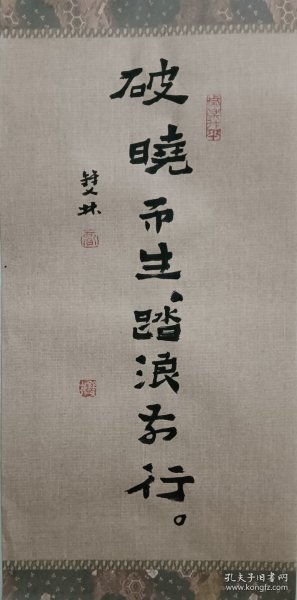 破曉而生、踏浪前行。
孔夫子旧书网
www.kongfz.com